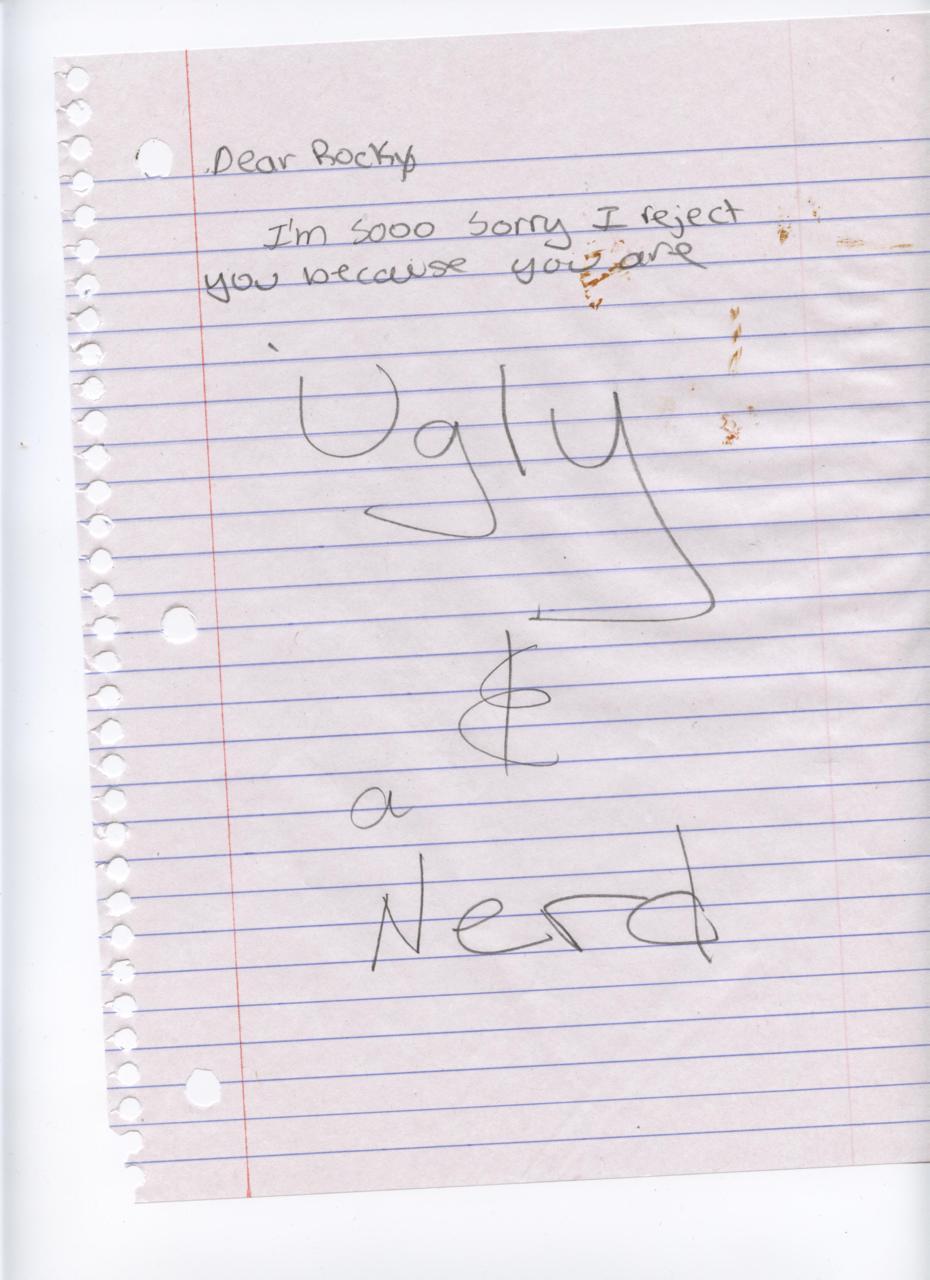 Dear Rocky
I'm sooo sorry I reject
you because you are
Ugly
&
a
Nerd